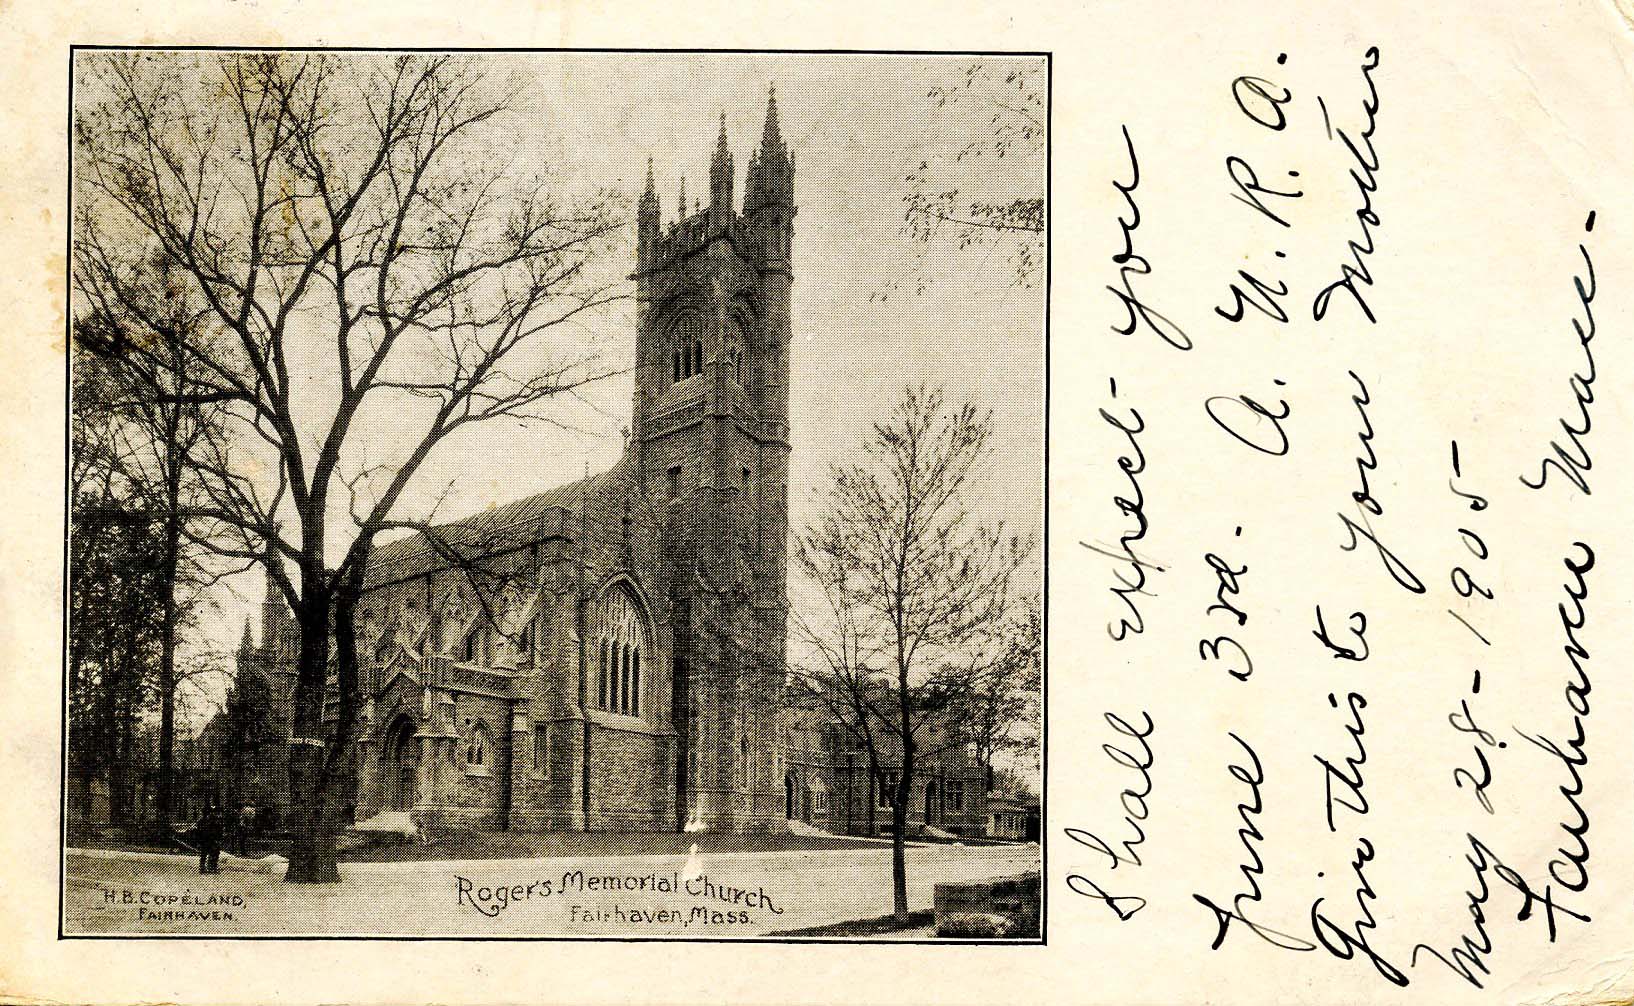 H.B. COPELAND,
FAIRHAVEN.
Roger's Memorial Church
Fairhaven, Mass.
Shall expect you
June 3rd. A. N. R. A.
Give this to your Mother
May 28-1905
Fairhaven Mass.